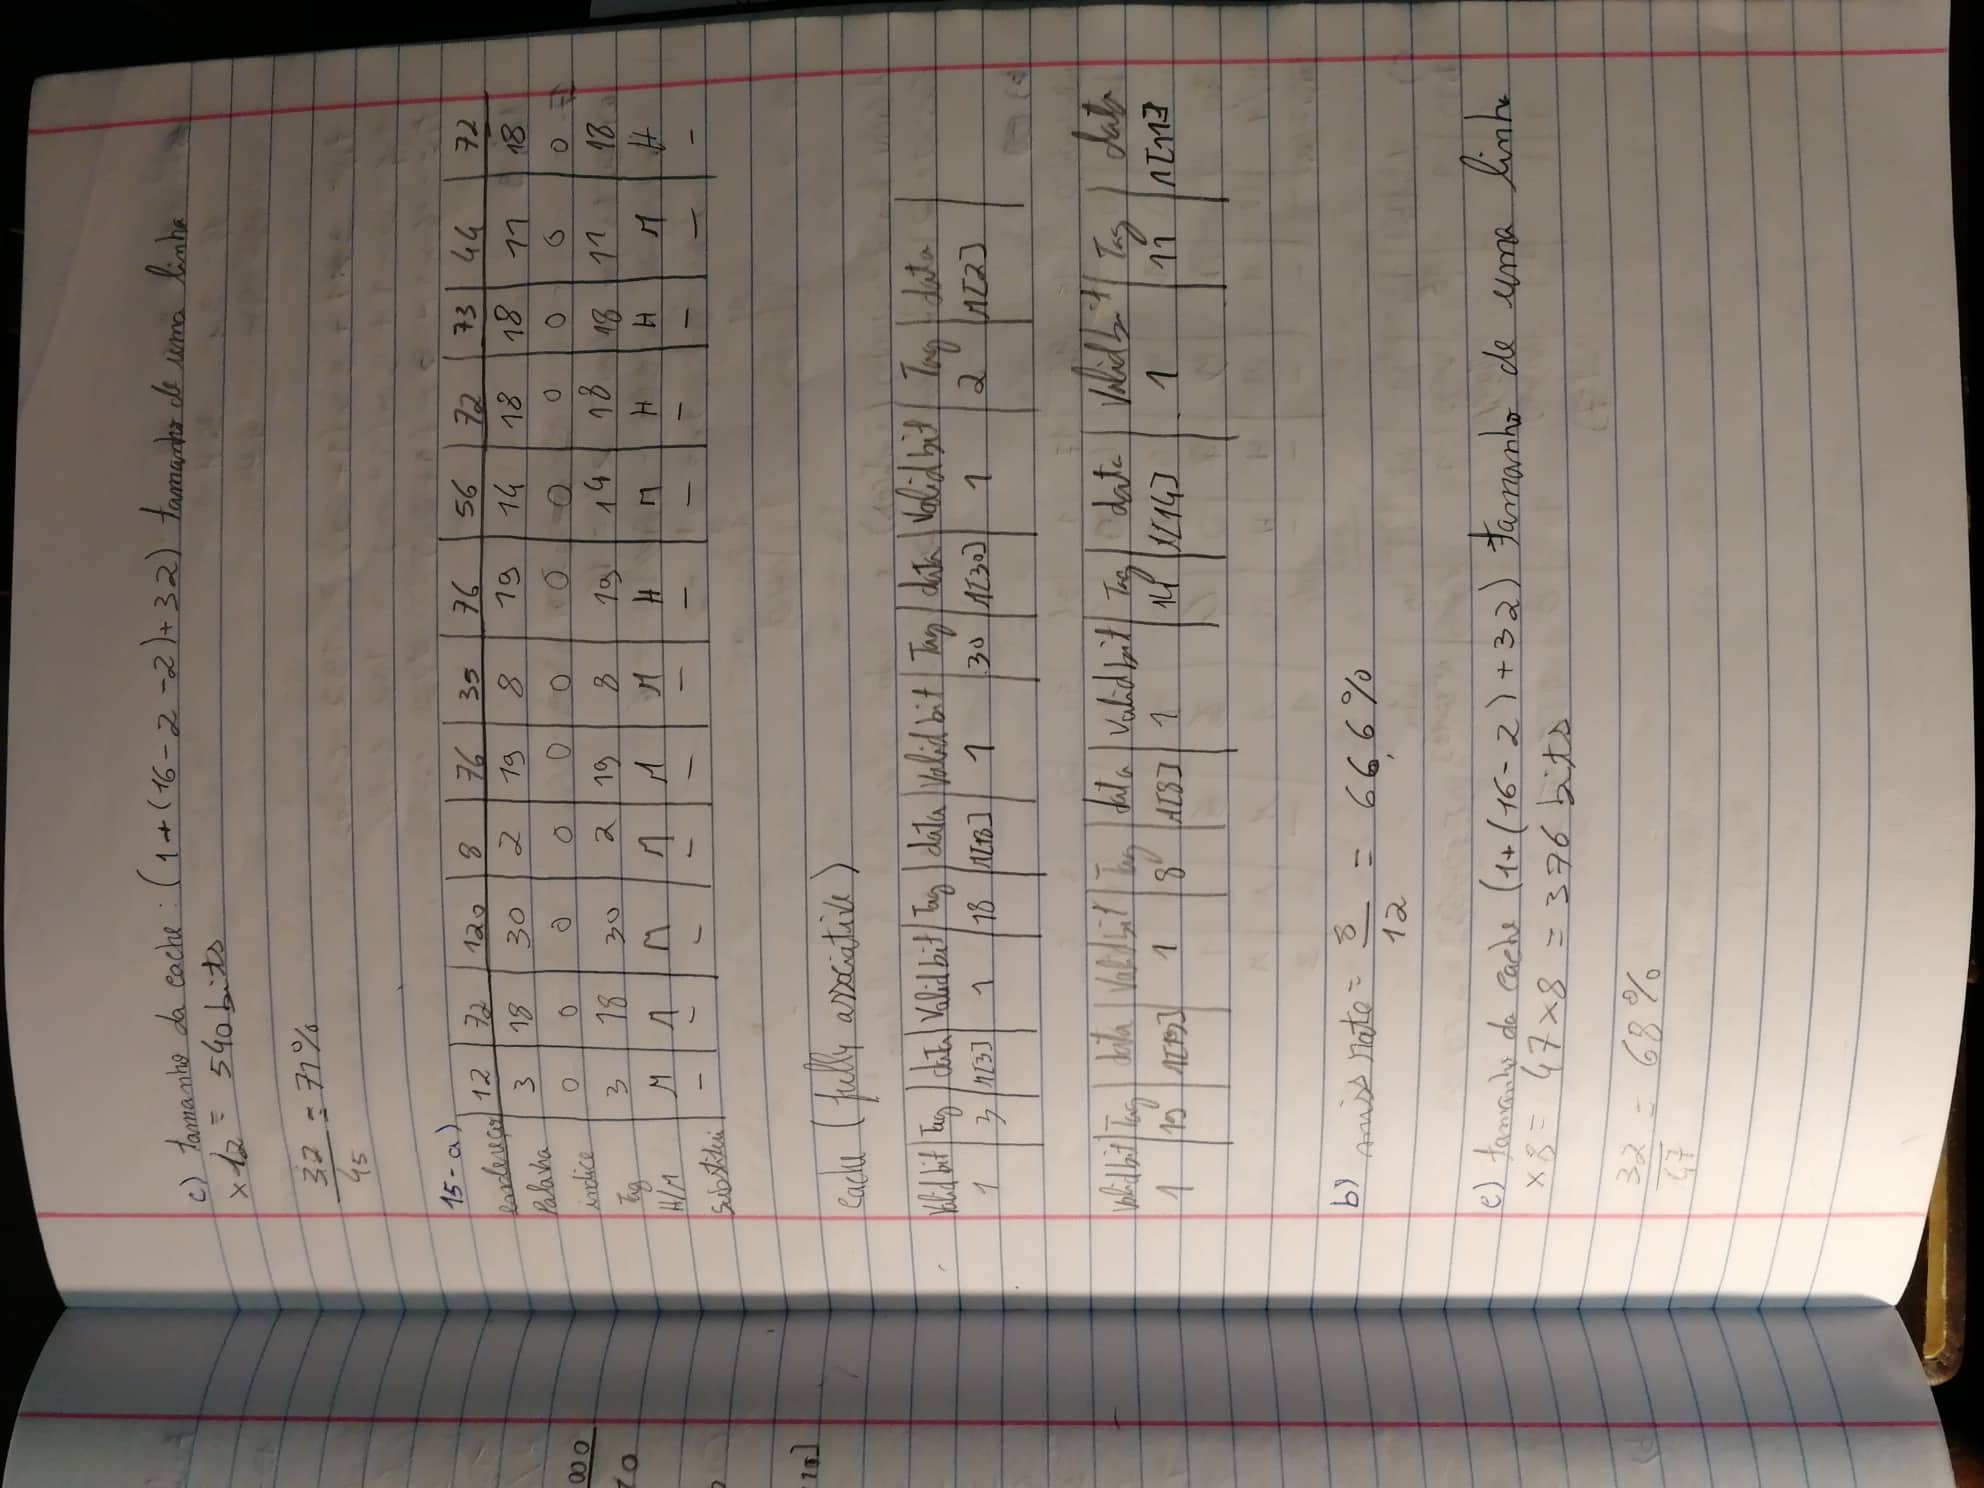 c) tamanho da cache: (1+(16-2-2)+32) tamanho de uma linha
x12 = 540 bits
32/45 = 71%
15-a)
endereço | 12 | 72 | 120 | 8 | 76 | 35 | 76 | 56 | 72 | 73 | 44 | 72
Palavra 3 18 30 2 19 8 19 14 18 18 11 18
indice 0 0 0 0 0 0 0 0 0 0 0 0
Tag 3 18 30 2 19 8 19 14 18 18 11 18
H/M M M M M M M H M H H M H
Substitui - - - - - - - - - - - -
cache (fully associative)
Valid bit | Tag | data | Valid bit | Tag | data | Valid bit | Tag | data | Valid bit | Tag | data
1 | 3 | M[3] | 1 | 18 | M[18] | 1 | 30 | M[30] | 1 | 2 | M[2]
Valid bit | Tag | data | Valid bit | Tag | data | Valid bit | Tag | data | Valid bit | Tag | data
1 | 19 | M[19] | 1 | 8 | M[8] | 1 | 14 | M[14] | 1 | 11 | M[11]
b) miss rate = 8/12 = 66,6%
c) tamanho da cache (1+(16-2)+32) tamanho de uma linha
x8 = 47x8 = 376 bits
32/47 = 68%